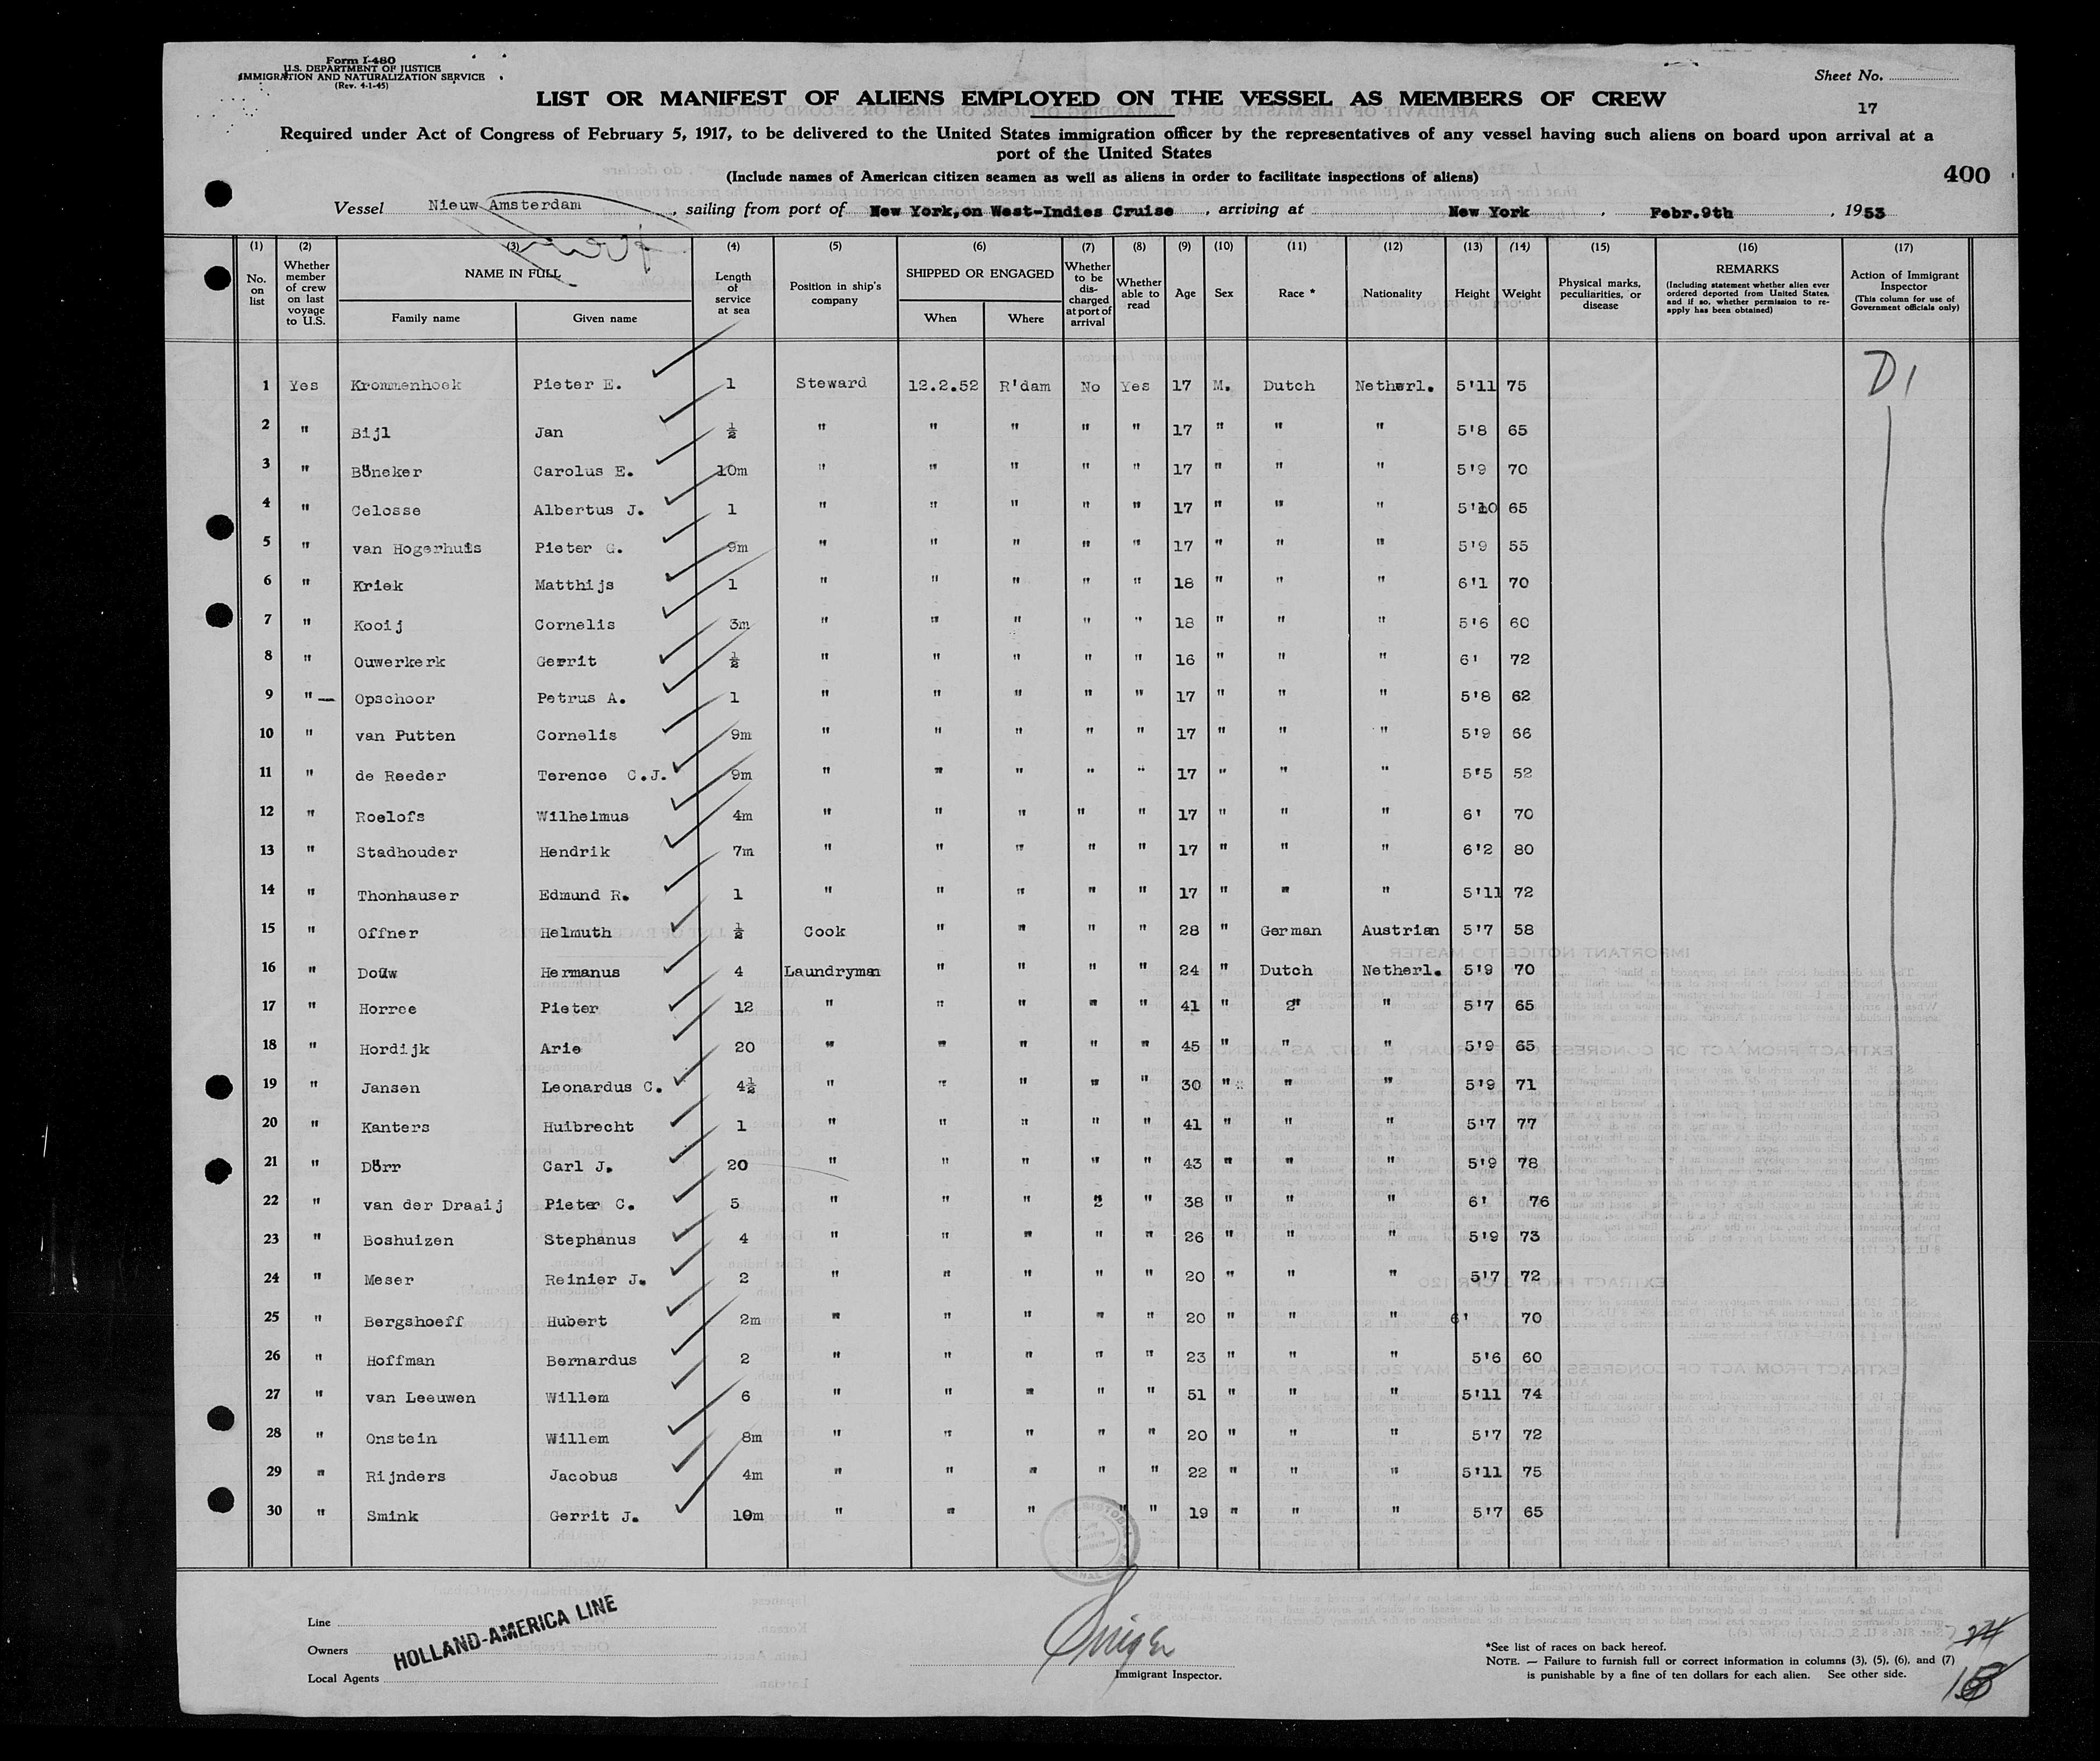 Form I-480
U.S. DEPARTMENT OF JUSTICE
IMMIGRATION AND NATURALIZATION SERVICE
(Rev. 4-1-45)
Sheet No.
17
LIST OR MANIFEST OF ALIENS EMPLOYED ON THE VESSEL AS MEMBERS OF CREW
Required under Act of Congress of February 5, 1917, to be delivered to the United States immigration officer by the representatives of any vessel having such aliens on board upon arrival at a
port of the United States
(Include names of American citizen seamen as well as aliens in order to facilitate inspections of aliens)
400
Vessel Nieuw Amsterdam, sailing from port of New York, on West-Indies Cruise, arriving at New York, Febr.9th, 1953
(1) (2) (3) (4) (5) (6) (7) (8) (9) (10) (11) (12) (13) (14) (15) (16) (17)
No. on list
Whether member of crew on last voyage to U.S.
NAME IN FULL
Family name
Given name
Length of service at sea
Position in ship's company
SHIPPED OR ENGAGED
When
Where
Whether to be discharged at port of arrival
Whether able to read
Age
Sex
Race *
Nationality
Height
Weight
Physical marks, peculiarities, or disease
REMARKS
(Including statement whether alien ever ordered deported from United States, and if so, whether permission to re-apply has been obtained)
Action of Immigrant Inspector
(This column for use of Government officials only)
1 Yes Krommenhoek Pieter E. 1 Steward 12.2.52 R'dam No Yes 17 M. Dutch Netherl. 5'11 75 D1
2 " Bijl Jan ½ " " " " " 17 " " " 5'8 65
3 " Böneker Carolus E. 10m " " " " " 17 " " " 5'9 70
4 " Celosse Albertus J. 1 " " " " " 17 " " " 5'10 65
5 " van Hogerhuis Pieter G. 9m " " " " " 17 " " " 5'9 55
6 " Kriek Matthijs 1 " " " " " 18 " " " 6'1 70
7 " Kooij Cornelis 3m " " " " " 18 " " " 5'6 60
8 " Ouwerkerk Gerrit ½ " " " " " 16 " " " 6' 72
9 " — Opschoor Petrus A. 1 " " " " " 17 " " " 5'8 62
10 " van Putten Cornelis 9m " " " " " 17 " " " 5'9 66
11 " de Reeder Terence C.J. 9m " " " " " 17 " " " 5'5 52
12 " Roelofs Wilhelmus 4m " " " " " 17 " " " 6' 70
13 " Stadhouder Hendrik 7m " " " " " 17 " " " 6'2 80
14 " Thonhauser Edmund R. 1 " " " " " 17 " " " 5'11 72
15 " Offner Helmuth ½ Cook " " " " 28 " German Austrian 5'7 58
16 " Douw Hermanus 4 Laundryman " " " " 24 " Dutch Netherl. 5'9 70
17 " Horree Pieter 12 " " " " " 41 " " " 5'7 65
18 " Hordijk Arie 20 " " " " " 45 " " " 5'9 65
19 " Jansen Leonardus C. 4½ " " " " " 30 " " " 5'9 71
20 " Kanters Huibrecht 1 " " " " " 41 " " " 5'7 77
21 " Dörr Carl J. 20 " " " " " 43 " " " 5'9 78
22 " van der Draaij Pieter C. 5 " " " " " 38 " " " 6' 76
23 " Boshuizen Stephanus 4 " " " " " 26 " " " 5'9 73
24 " Meser Reinier J. 2 " " " " " 20 " " " 5'7 72
25 " Bergshoeff Hubert 2m " " " " " 20 " " " 6' 70
26 " Hoffman Bernardus 2 " " " " " 23 " " " 5'6 60
27 " van Leeuwen Willem 6 " " " " " 51 " " " 5'11 74
28 " Onstein Willem 8m " " " " " 20 " " " 5'7 72
29 " Rijnders Jacobus 4m " " " " " 22 " " " 5'11 75
30 " Smink Gerrit J. 10m " " " " " 19 " " " 5'7 65
Line
Owners
Local Agents
HOLLAND-AMERICA LINE
Immigrant Inspector.
*See list of races on back hereof.
NOTE. — Failure to furnish full or correct information in columns (3), (5), (6), and (7)
is punishable by a fine of ten dollars for each alien. See other side.